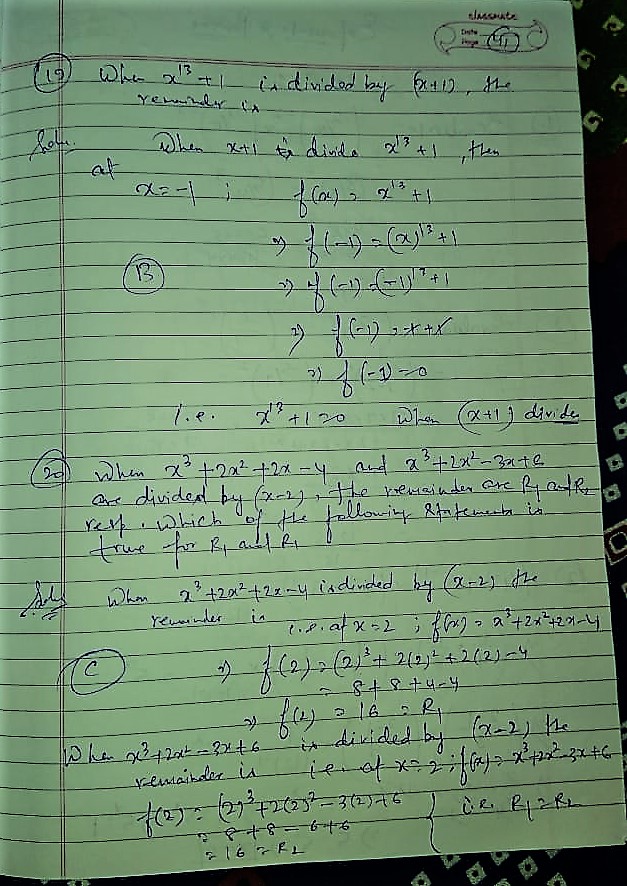 classmate
Date
Page 41
(19) When x¹³ + 1 is divided by (x+1), the
remainder is
Soln. When x+1 divide x¹³ + 1, then
at
x = -1 ; f(x) = x¹³ + 1
⇒ f(-1) = (x)¹³ + 1
(B) ⇒ f(-1) = (-1)¹³ + 1
⇒ f(-1) = -1 + 1
⇒ f(-1) = 0
i.e. x¹³ + 1 = 0 When (x+1) divide
(20) When x³ + 2x² + 2x - 4 and x³ + 2x² - 3x + 6
are divided by (x-2), the remainder are R₁ and R₂
resp. Which of the following statements is
true for R₁ and R₁
Soln When x³ + 2x² + 2x - 4 is divided by (x-2) the
remainder is i.e. at x = 2 ; f(x) = x³ + 2x² + 2x - 4
(C) ⇒ f(2) = (2)³ + 2(2)² + 2(2) - 4
= 8 + 8 + 4 - 4
⇒ f(2) = 16 = R₁
When x³ + 2x² - 3x + 6 is divided by (x-2) the
remainder is i.e. at x = 2 ; f(x) = x³ + 2x² - 3x + 6
f(2) = (2)³ + 2(2)² - 3(2) + 6 } i.e. R₁ = R₂
= 8 + 8 - 6 + 6
= 16 = R₂